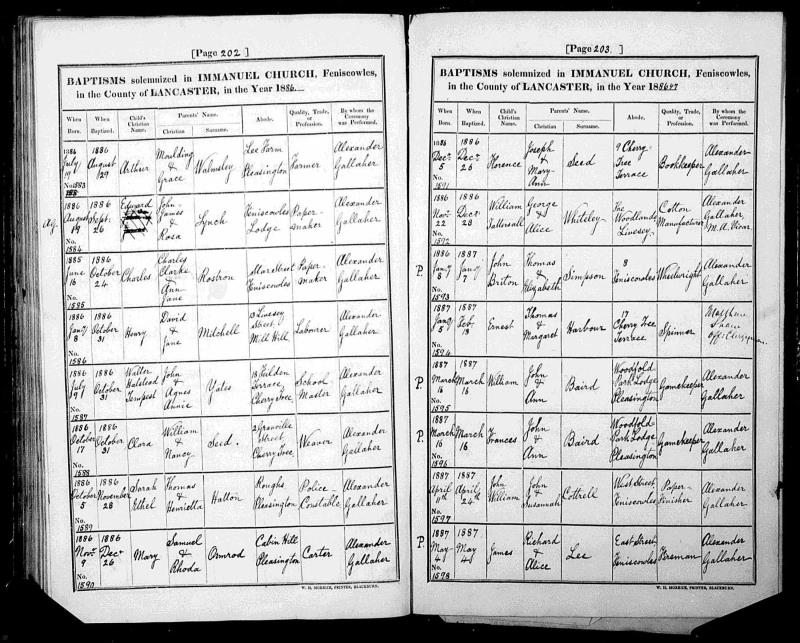 [Page 202 ]
BAPTISMS solemnized in IMMANUEL CHURCH, Feniscowles,
in the County of LANCASTER, in the Year 1886
When Born. When Baptized. Child's Christian Name. Parents' Name. Christian Surname. Abode. Quality, Trade, or Profession. By whom the Ceremony was Performed.
1886 July 19 No. 1583 1886 August 29 Arthur Moulding & Grace Walmsley Lee Farm Pleasington Farmer Alexander Gallaher
A.G. 1886 August 19 No. 1584 1886 Sept. 26 Edward John James & Rosa Lynch Feniscowles Lodge Paper-maker Alexander Gallaher
1885 June 16 No. 1585 1886 October 24 Charles Charles Clarke & Ann Jane Rostron Star Street Feniscowles Paper-maker Alexander Gallaher
1886 Jany 8 No. 1586 1886 October 31 Henry David & Jane Mitchell 3 Livesey Street Mill Hill Labourer Alexander Gallaher
1886 July 9 No. 1587 1886 October 31 Walter Halstead Tempest John & Agnes Annie Yates 18 Feilden Terrace Cherry Tree School Master Alexander Gallaher
1886 October 17 No. 1588 1886 October 31 Clara William & Nancy Seed 2 Granville Street Cherry Tree Weaver Alexander Gallaher
1886 October 5 No. 1589 1886 November 28 Sarah Ethel Thomas & Henrietta Halton Roughs Pleasington Police-Constable Alexander Gallaher
1886 Novr 9 No. 1590 1886 Decr 26 Mary Samuel & Rhoda Ormrod Cabin Hill Pleasington Carter Alexander Gallaher
W. H. MORRICE, PRINTER, BLACKBURN.
[Page 203. ]
BAPTISMS solemnized in IMMANUEL CHURCH, Feniscowles,
in the County of LANCASTER, in the Year 1886-7
When Born. When Baptized. Child's Christian Name. Parents' Name. Christian Surname. Abode. Quality, Trade, or Profession. By whom the Ceremony was Performed.
1886 Decr 5 No. 1591 1886 Decr 26 Florence Joseph & Mary Ann Seed 9 Cherry Tree Terrace Bookkeeper Alexander Gallaher
1886 Novr 22 No. 1592 1886 Decr 28 William Tattersall George & Alice Whiteley The Woodlands Livesey Cotton Manufacturer Alexander Gallaher, M.A. Vicar.
P. 1886 Jany 8 No. 1593 1887 Jany 7 John Briton Thomas & Elizabeth Simpson 8 Feniscowles Wheelwright Alexander Gallaher
1887 Jany 5 No. 1594 1887 Feby 13 Ernest Thomas & Margaret Harbour 17 Cherry Tree Terrace Spinner Matthew
P. 1887 March 16 No. 1595 1887 March 16 William John & Ann Baird Woodfold Park Lodge Pleasington Gamekeeper Alexander Gallaher
P. 1887 March 16 No. 1596 1887 March 16 Frances John & Ann Baird Woodfold Park Lodge Pleasington Gamekeeper Alexander Gallaher
1887 April 11th No. 1597 1887 April 24th John William John & Susannah Cottrell West Street Feniscowles Paper-Finisher Alexander Gallaher
P. 1887 May 4 No. 1598 1887 May 4 James Richard & Alice Lee East Street Feniscowles Fireman Alexander Gallaher
W. H. MORRICE, PRINTER, BLACKBURN.